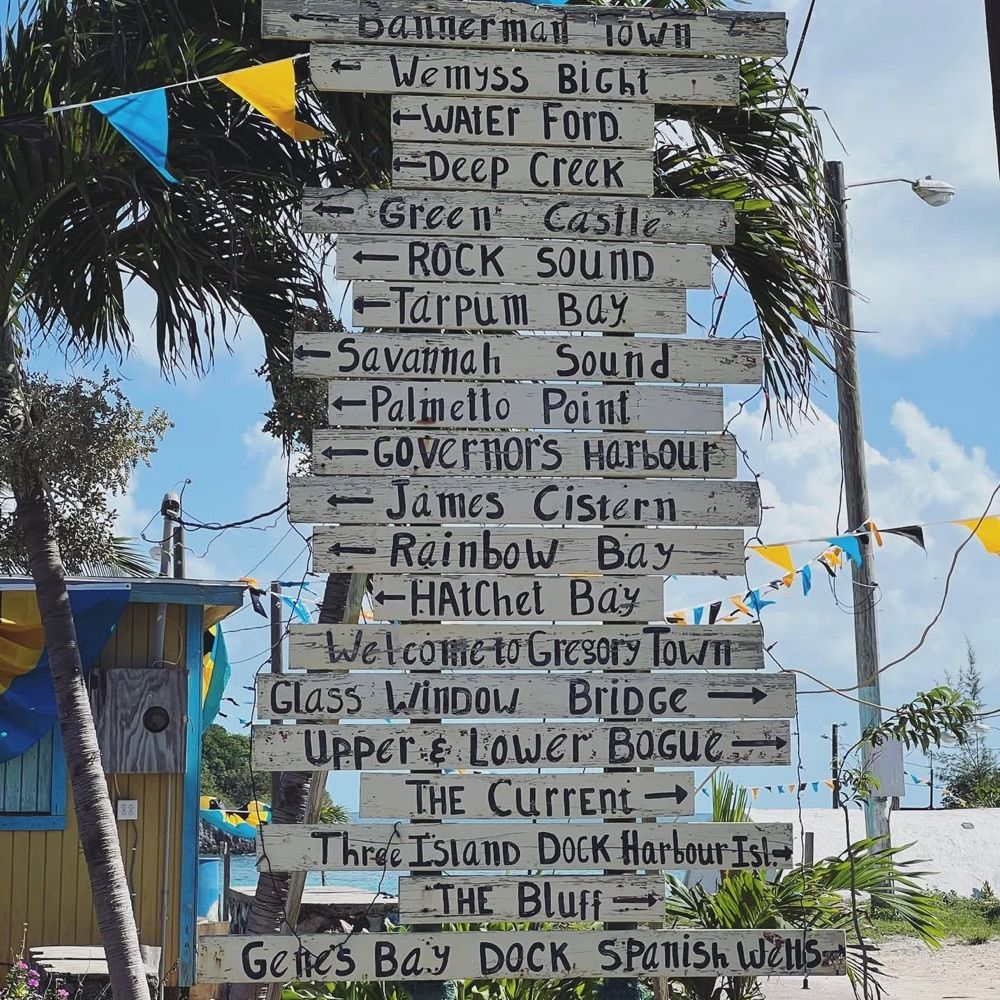 ← Bannerman Town
← Wemyss Bight
← Water Ford.
← Deep Creek
← Green Castle
← ROCK SOUND
← Tarpum Bay
← Savannah Sound
← Palmetto Point
← GOVERNOR'S HARBOUR
← James Cistern
← Rainbow Bay
← HAtChet Bay
Welcome to Gregory Town
Glass Window Bridge →
Upper & Lower Bogue →
THE Current →
Three Island Dock Harbour Isl. →
THE Bluff →
Gene's Bay Dock Spanish Wells →